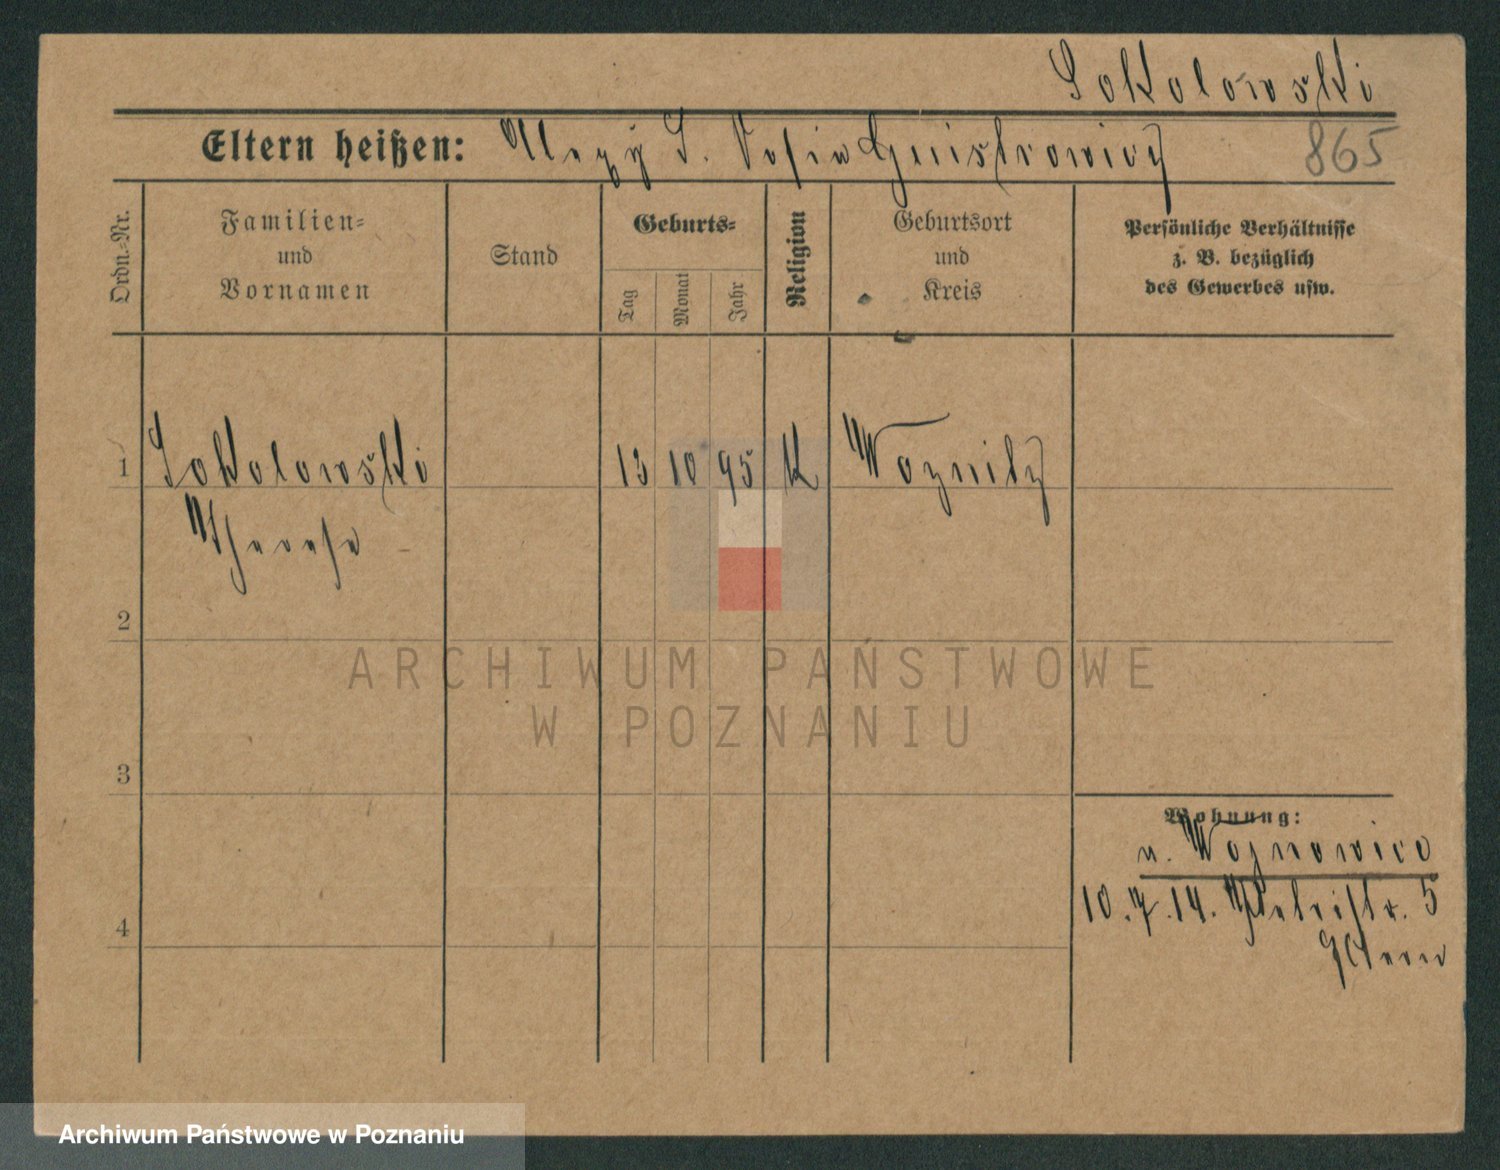 Sokolowski
Eltern heißen: S. Sofia
865
Ordn.-Nr.
Familien-
und
Vornamen
Stand
Geburts-
Tag
Monat
Jahr
Religion
Geburtsort
und
Kreis
Persönliche Verhältnisse
z. B. bezüglich
des Gewerbes usw.
1 Sokolowski 13 10 95 K Woznitz
Therese
2
ARCHIWUM PAŃSTWOWE
W POZNANIU
3
Wohnung:
n. Woznowice
10.7.14. Petristr. 5
4
Archiwum Państwowe w Poznaniu